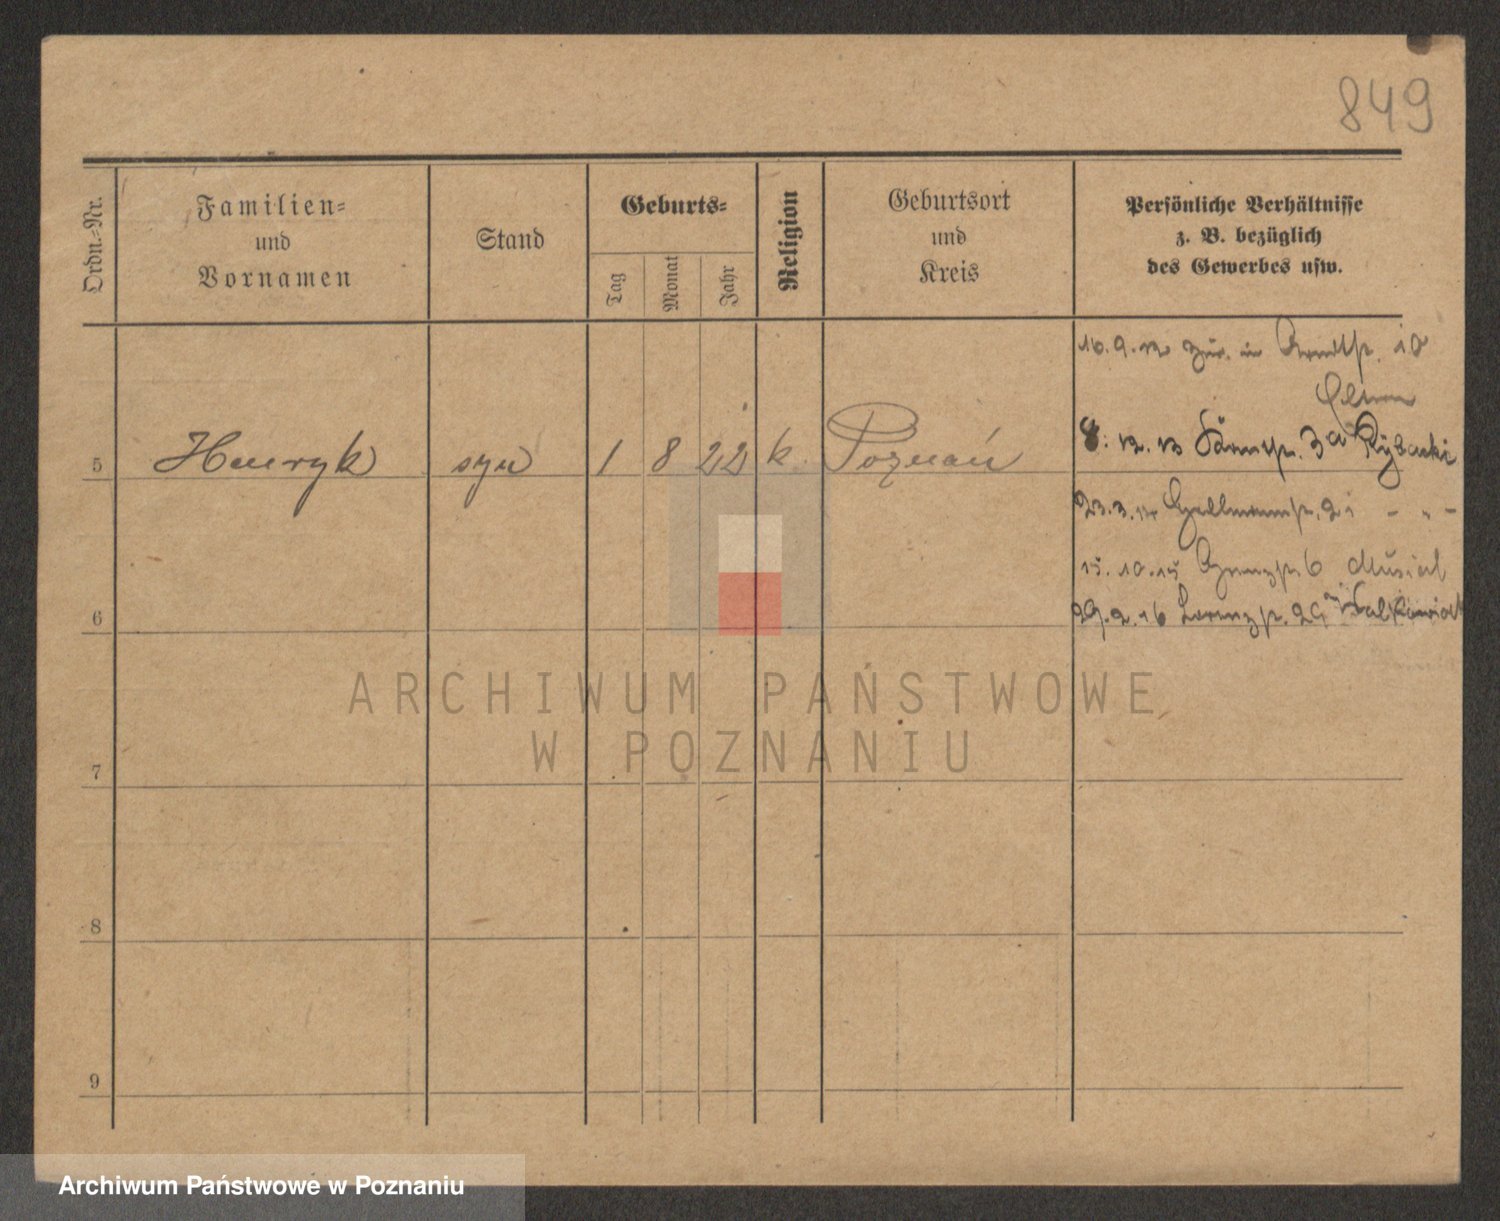 849
Ordn.-Nr.
Familien-
und
Vornamen
Stand
Geburts-
Tag
Monat
Jahr
Religion
Geburtsort
und
Kreis
Persönliche Verhältnisse
z. B. bezüglich
des Gewerbes usw.
16.9.12 zur. in 10
Eltern
5 Henryk syn 1 8 22 k Poznań
8. 12. 13 3a Rybacki
23.3.14 21 - " -
15. 10. 15 Grenzstr. 6 Musial
6
29. 2. 16 Lorenzstr.
7
8
9
ARCHIWUM PAŃSTWOWE
W POZNANIU
Archiwum Państwowe w Poznaniu